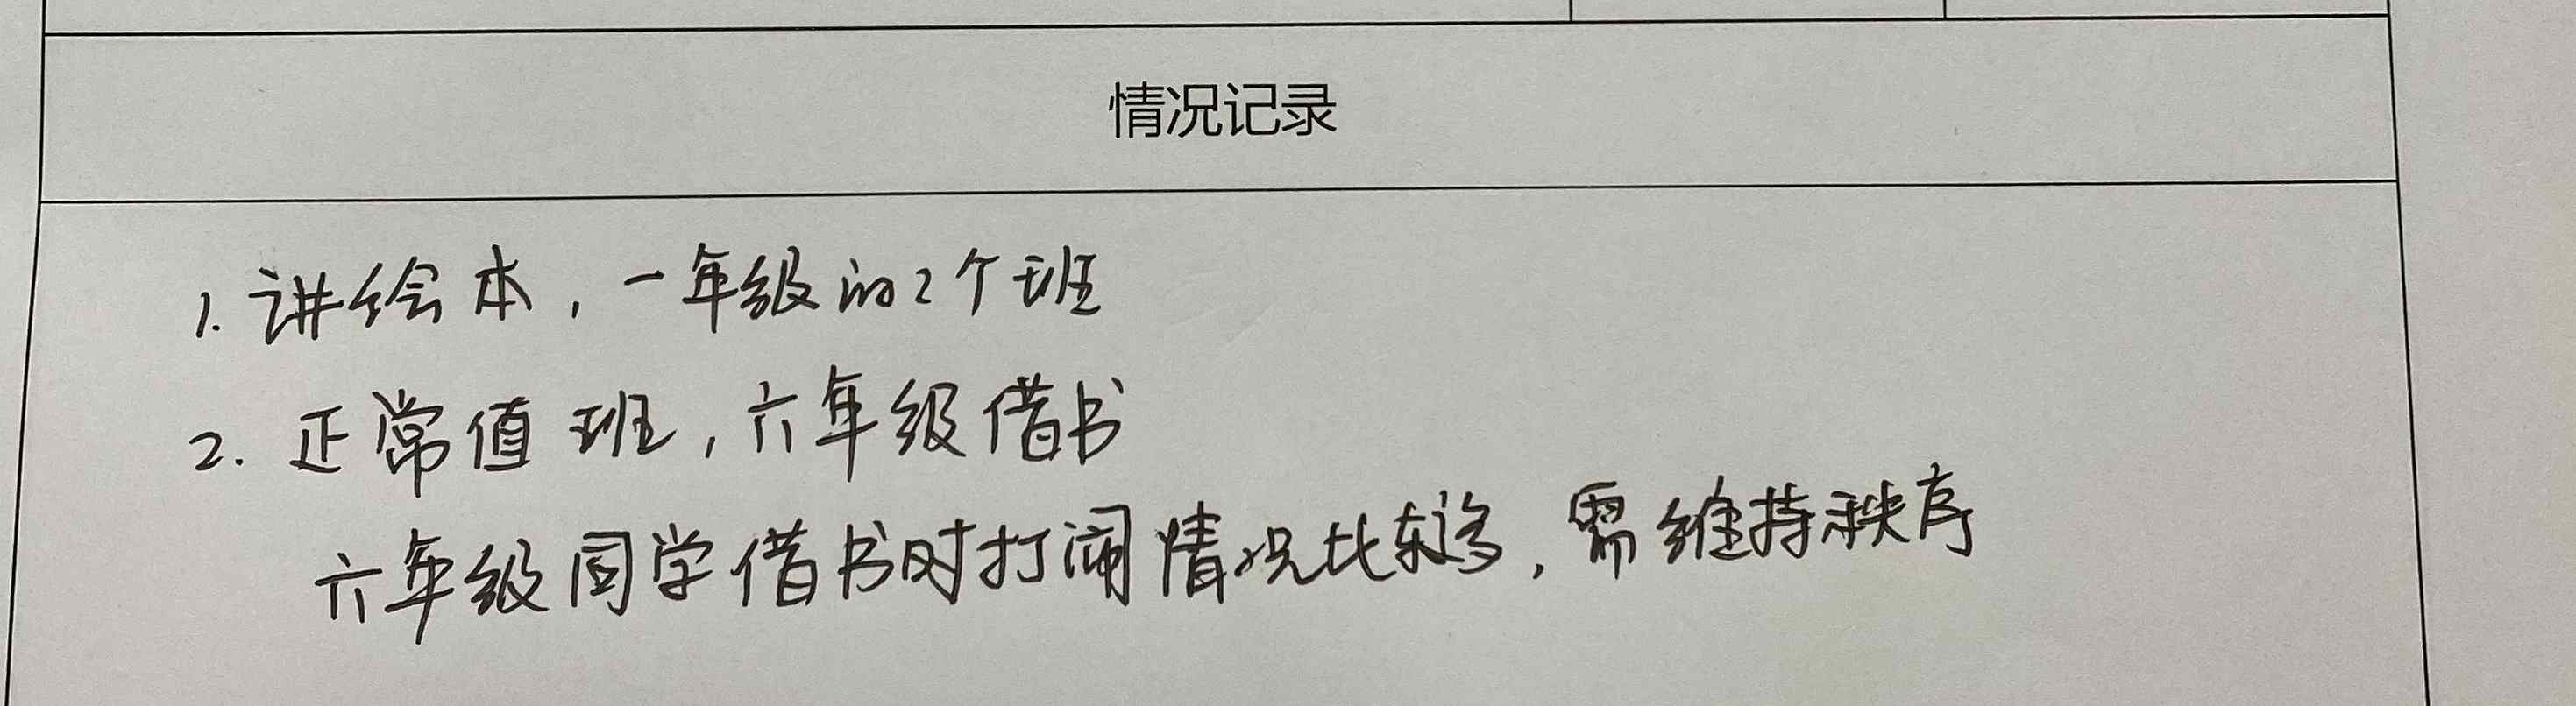 情况记录
1. 讲绘本，一年级的2个班
2. 正常值班，六年级借书
六年级同学借书时打闹情况比较多，需维持秩序